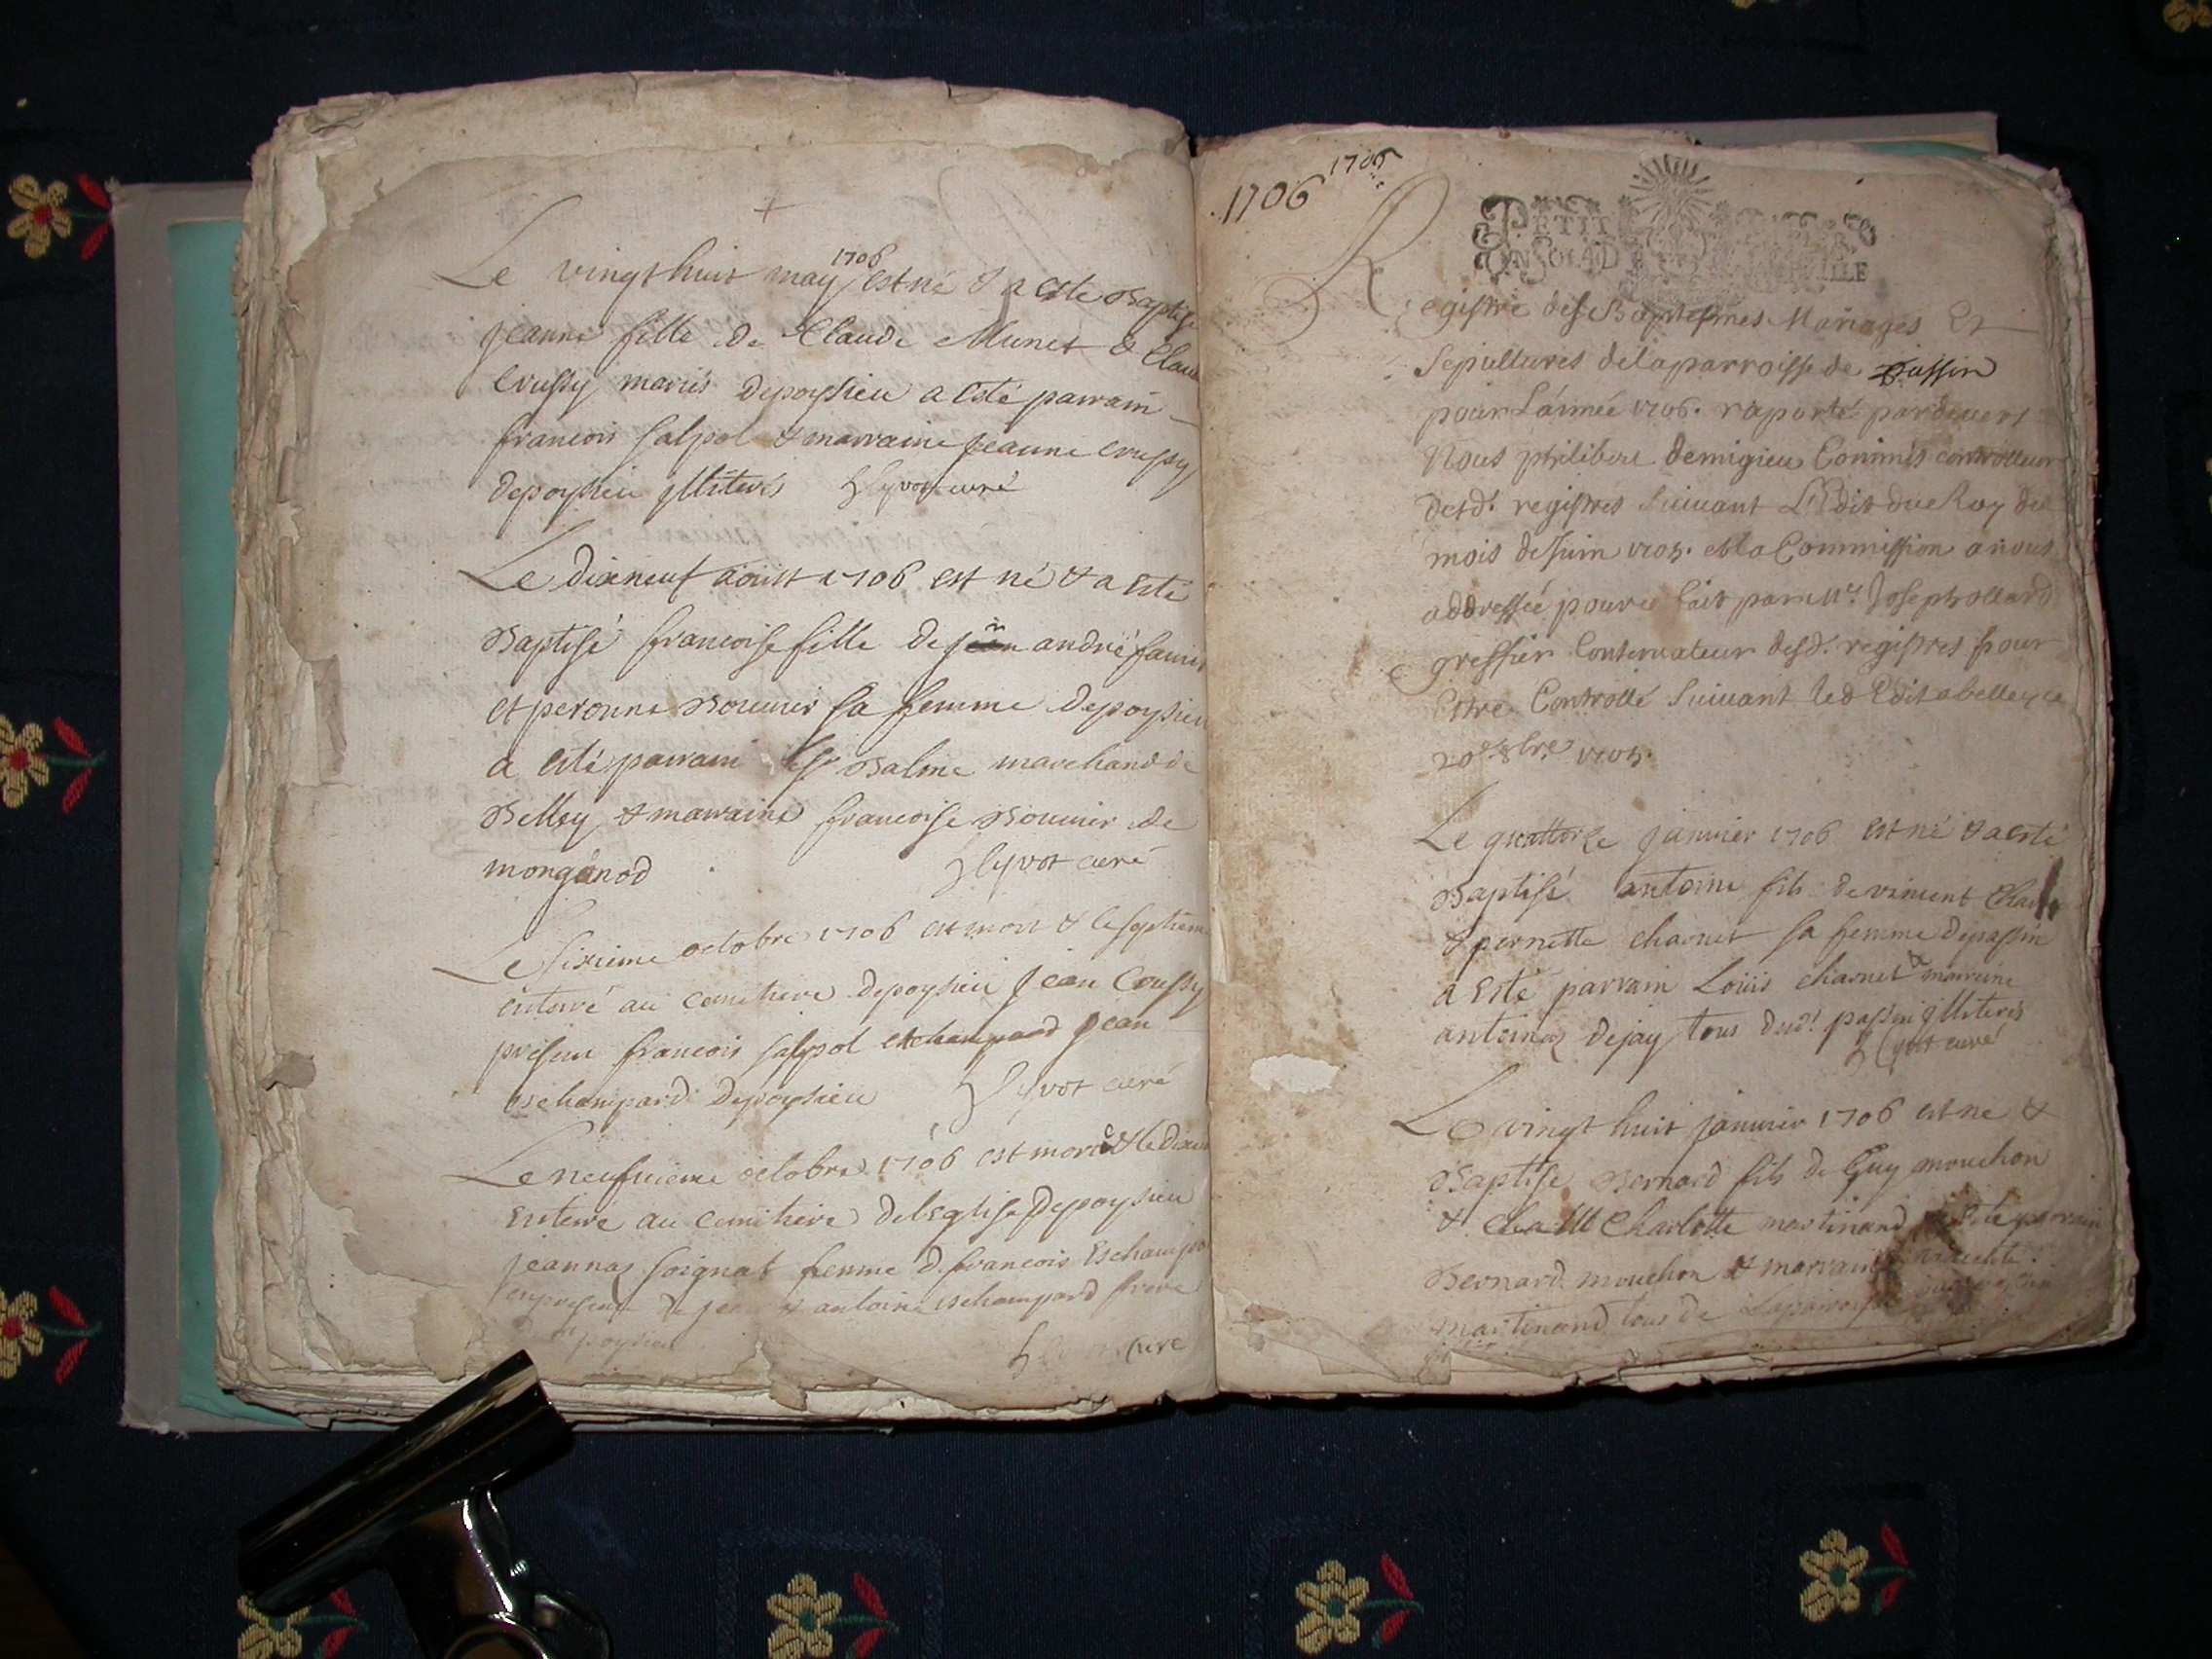 Le vingt huit may 1706 est né & a esté Baptisé
jeanne fille de Claude Munet & Clau
Crussy mariés depoysieu a esté parrain
francois salpol & marraine jeanne crussy
depoysieu illiterés Hyvot curé
Le dixneuf aoust 1706 est né & a esté
Baptisé francoise fille de andré
et peronne Bouvier sa femme depoysieu
a esté parrain Balme marchand de
Belley & marraine francoise Bouvier de
mongénod Hyvot curé
Le sixieme octobre 1706 est mort & le septieme
enterré au cemitiere depoysieu jean Crussy
présent francois salpol jean
eschampard depoysieu Hyvot curé
Le neufvieme octobre 1706 est morte & le
enterré au cemitiere de leglise depoysieu
jeanna soignat femme de francois Eschampa
en presence de jean & antoine eschampard frere
poysieu curé
1706 1706
PETIT
UN SOL LAD
Registre des Baptesmes Mariages Et
Sepultures de la parroisse de passin
pour Lannée 1706. raporté pardevert
Nous philibert demigieu Commis controlleur
desd. registres suivant L'Edit du Roy du
mois de Juin 1705. et la Commission a nous
addressée pour ce fait par Mr. Joseph ollard
greffier Conservateur desd. registres pour
Estre Controllé suivant led Edit a belley ce
20e. 8bre 1705.
Le quattorze janvier 1706 est né & a esté
Baptisé antoine fils de vincent
& pernette charnet sa femme depassin
a esté parrain Louis charnet & marraine
antoina dejay tous dud. passin illiterés
Hyvot curé
Le vingt huit janvier 1706 est né &
Baptisé Bernard fils de Guy mouchon
& Charlotte martinand parrain
Bernard mouchon & marraine
martinand tous de Laparroisse